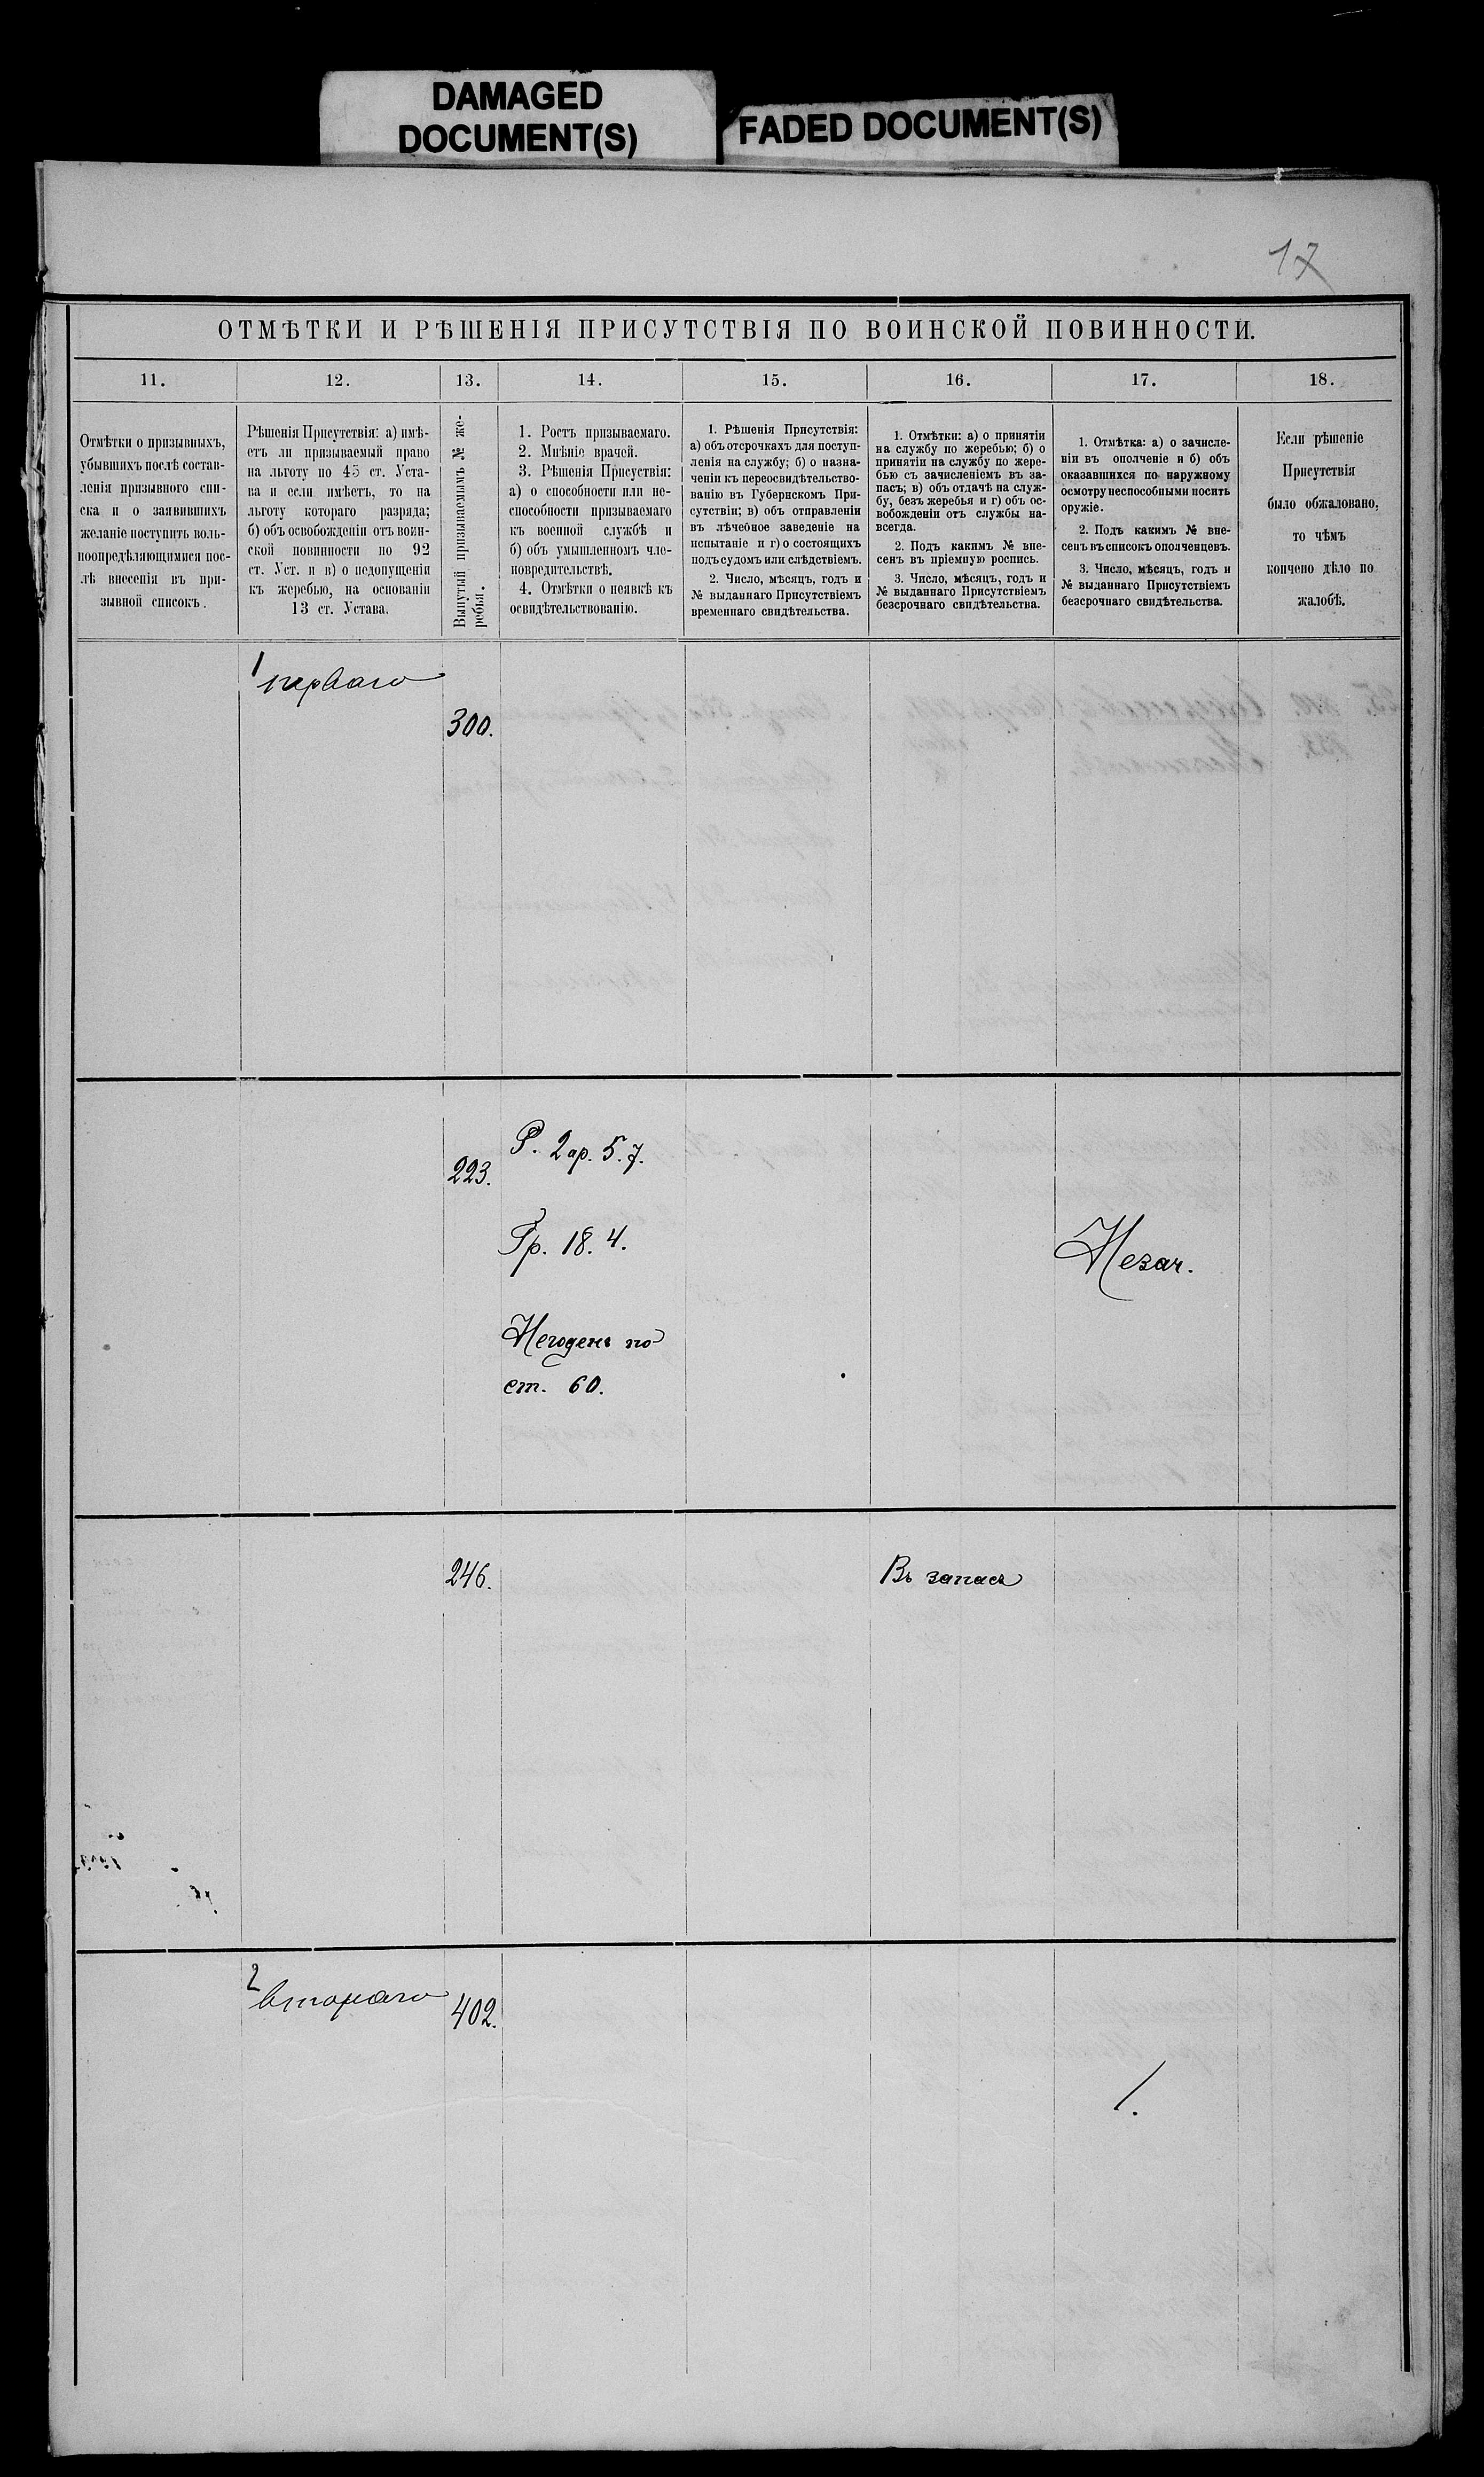 DAMAGED
DOCUMENT(S)
FADED DOCUMENT(S)
17
ОТМѢТКИ И РѢШЕНІЯ ПРИСУТСТВІЯ ПО ВОИНСКОЙ ПОВИННОСТИ.
11.
12.
13.
14.
15.
16.
17.
18.
Отмѣтки о призывныхъ,
убывшихъ послѣ состав-
ленія призывного спи-
ска и о заявившихъ
желаніе поступить воль-
ноопредѣляющимися пос-
лѣ внесенія въ при-
зывной списокъ.
Рѣшенія Присутствія: а) имѣ-
етъ ли призываемый право
на льготу по 45 ст. Уста-
ва и если имѣетъ, то на
льготу котораго разряда;
б) объ освобожденіи отъ воин-
ской повинности по 92
ст. Уст. и в) о недопущеніи
къ жеребью, на основаніи
13 ст. Устава.
Вынутый призываемымъ № же-
ребья.
1. Ростъ призываемаго.
2. Мнѣніе врачей.
3. Рѣшенія Присуствія:
а) о способности или не-
способности призываемаго
къ военной службѣ и
б) объ умышленномъ чле-
новредительствѣ.
4. Отмѣтки о неявкѣ къ
освидѣтельствованію.
1. Рѣшенія Присутствія:
а) объ отсрочкахъ для поступ-
ленія на службу; б) о назна-
ченіи къ переосвидѣтельство-
ванію въ Губернскомъ При-
сутствіи; в) объ отправленіи
въ лѣчебное заведеніе на
испытаніе и г) о состоящихъ
подъ судомъ или слѣдствіемъ.
2. Число, мѣсяцъ, годъ и
№ выданнаго Присутствіемъ
временнаго свидѣтельства.
1. Отмѣтки: а) о принятіи
на службу по жеребью; б) о
принятіи на службу по жере-
бью съ зачисленіемъ въ за-
пасъ; в) объ отдачѣ на служ-
бу, безъ жеребья и г) объ ос-
вобожденіи отъ службы на-
всегда.
2. Подъ какимъ № вне-
сенъ въ пріемную роспись.
3. Число, мѣсяцъ, годъ и
№ выданнаго Присутствіемъ
безсрочнаго свидѣтельства.
1. Отмѣтка: а) о зачисле-
ніи въ ополченіе и б) объ
оказавшихся по наружному
осмотру неспособными носить
оружіе.
2. Подъ какимъ № вне-
сенъ въ списокъ ополченцевъ.
3. Число, мѣсяцъ, годъ и
№ выданнаго Присутствіемъ
безсрочнаго свидѣтельства.
Если рѣшеніе
Присутствія
было обжаловано,
то чѣмъ
кончено дѣло по
жалобѣ.
1
перваго
300.
223.
Р. 2 ар. 5. 7.
Гр. 18. 4.
Негоденъ по
ст. 60.
Незач.
246.
Въ запасъ
2
втораго
402.
1.